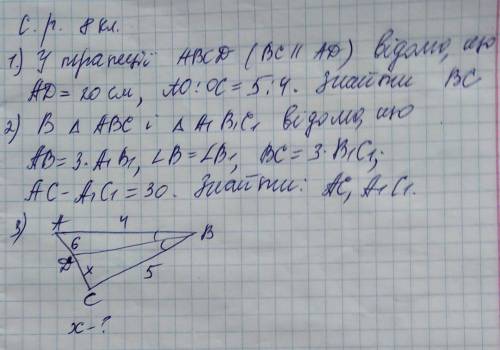 С. р. 8 кл.
1.) У трапеції ABCD (BC || AD) відомо, що
AD = 20 см, AO : OC = 5 : 4. Знайти BC
2) В Δ ABC і Δ A₁B₁C₁ відомо, що
AB = 3·A₁B₁, ∠B = ∠B₁, BC = 3·B₁C₁;
AC - A₁C₁ = 30. Знайти: AC, A₁C₁.
3) A 4 B
6
D
x 5
C
x - ?